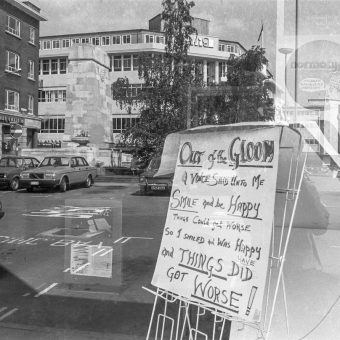 Out of the GLOOM
A VOICE SAID UNTO ME
SMILE and be HAPPY
THINGS COULD GET WORSE
SO I SMILED and WAS HAPPY
and THINGS DID
HAVE
GOT WORSE!